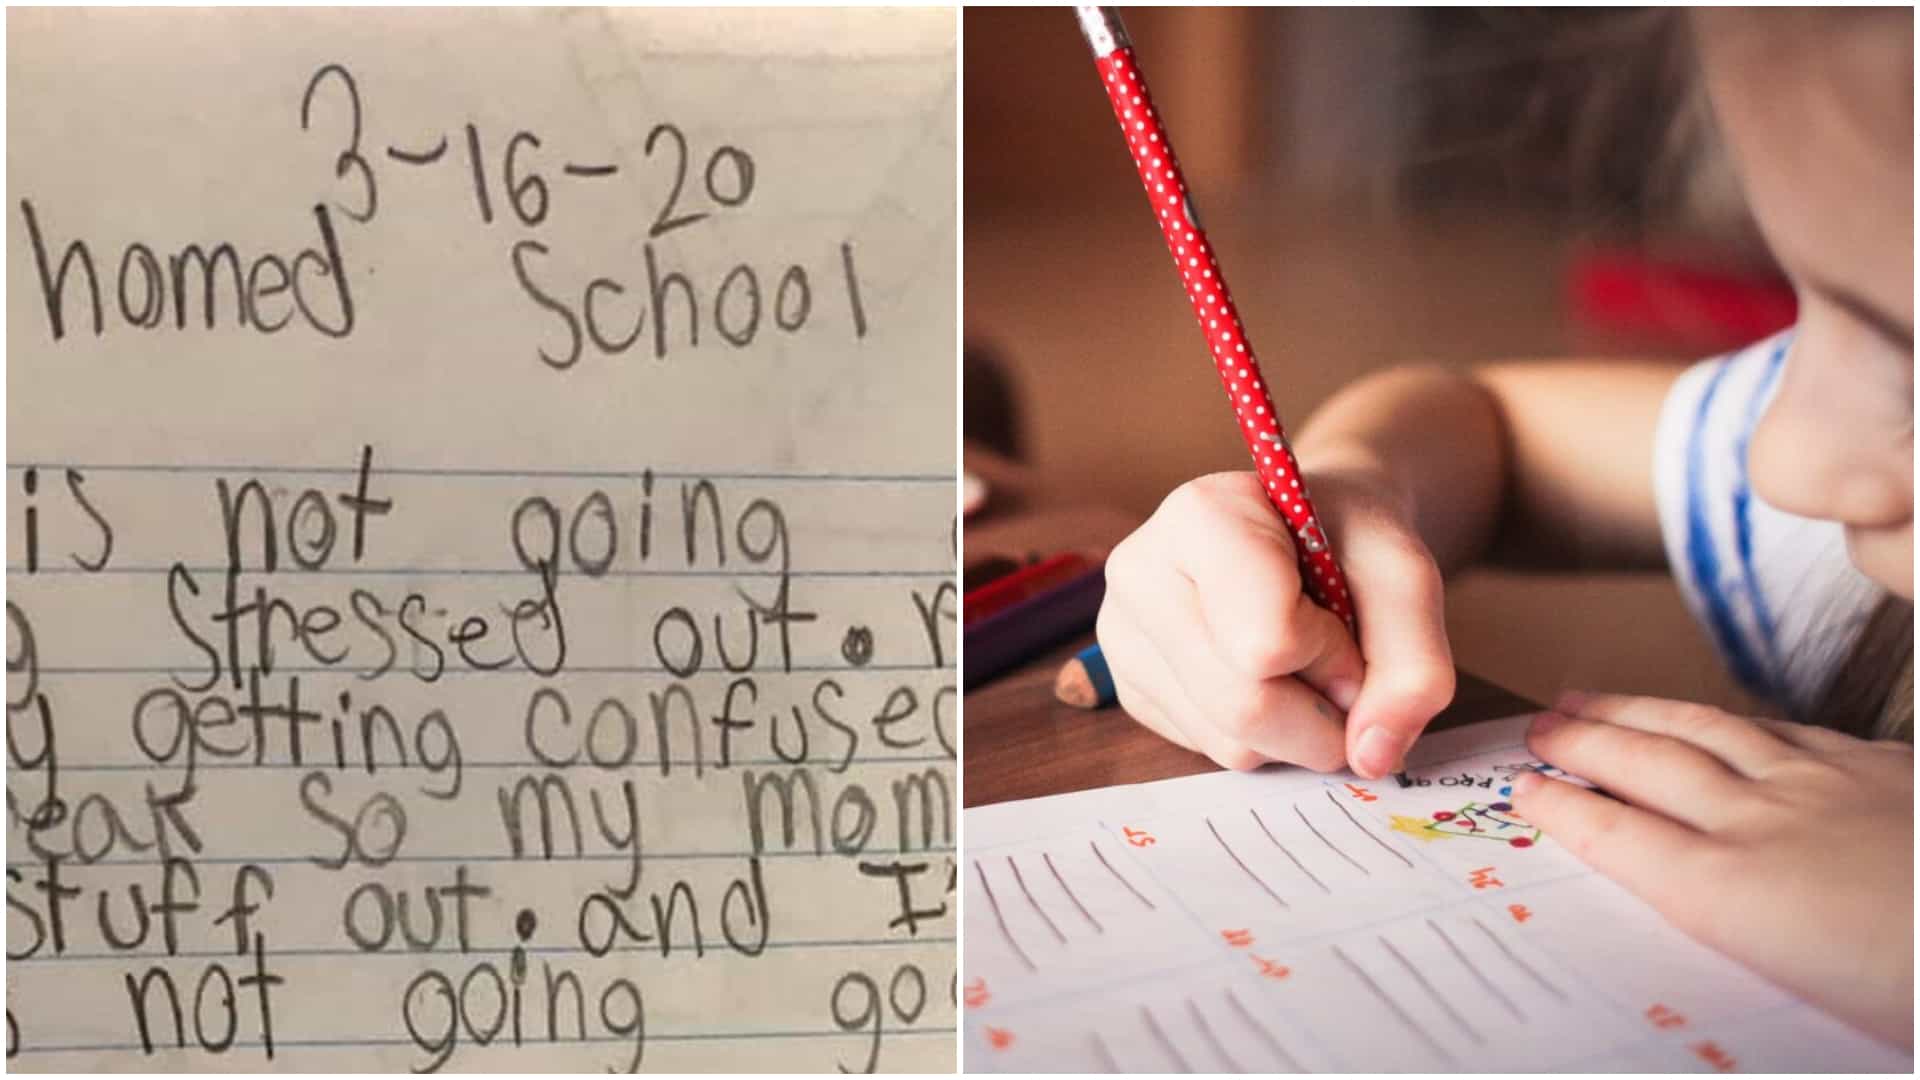 3-16-20
homed School
is not going
stressed out.
getting confused
so my mom
stuff out. and I'
not going